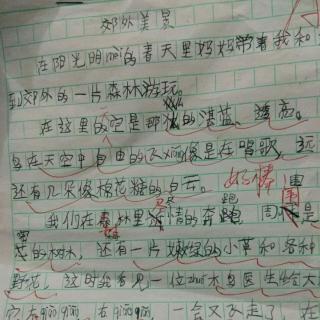 郊外美景
在阳光明mei的春天里妈妈带着我和
到郊外的一片森林游玩。
在这里的空是那的湛蓝、透亮。
鸟在天空中自由的飞xiang像是在唱歌，远
还有几朵像棉花糖的白云。 好棒
我们在森林里尽情的奔跑 周围是
的树木，还有一片嫩绿的小草和各种
野花，这时能看见一位zhuo木鸟医生给大
一会又飞走了，在